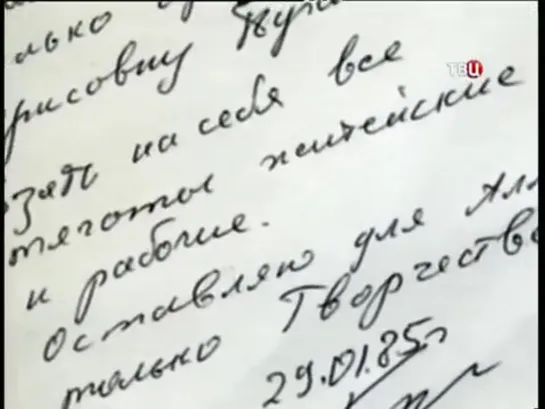 олько
рисовну Пуга
взять на себя все
тяготы житейские
и рабочие.
Оставляю для Алл
только Творчество
29.01.85г
ТВЦ